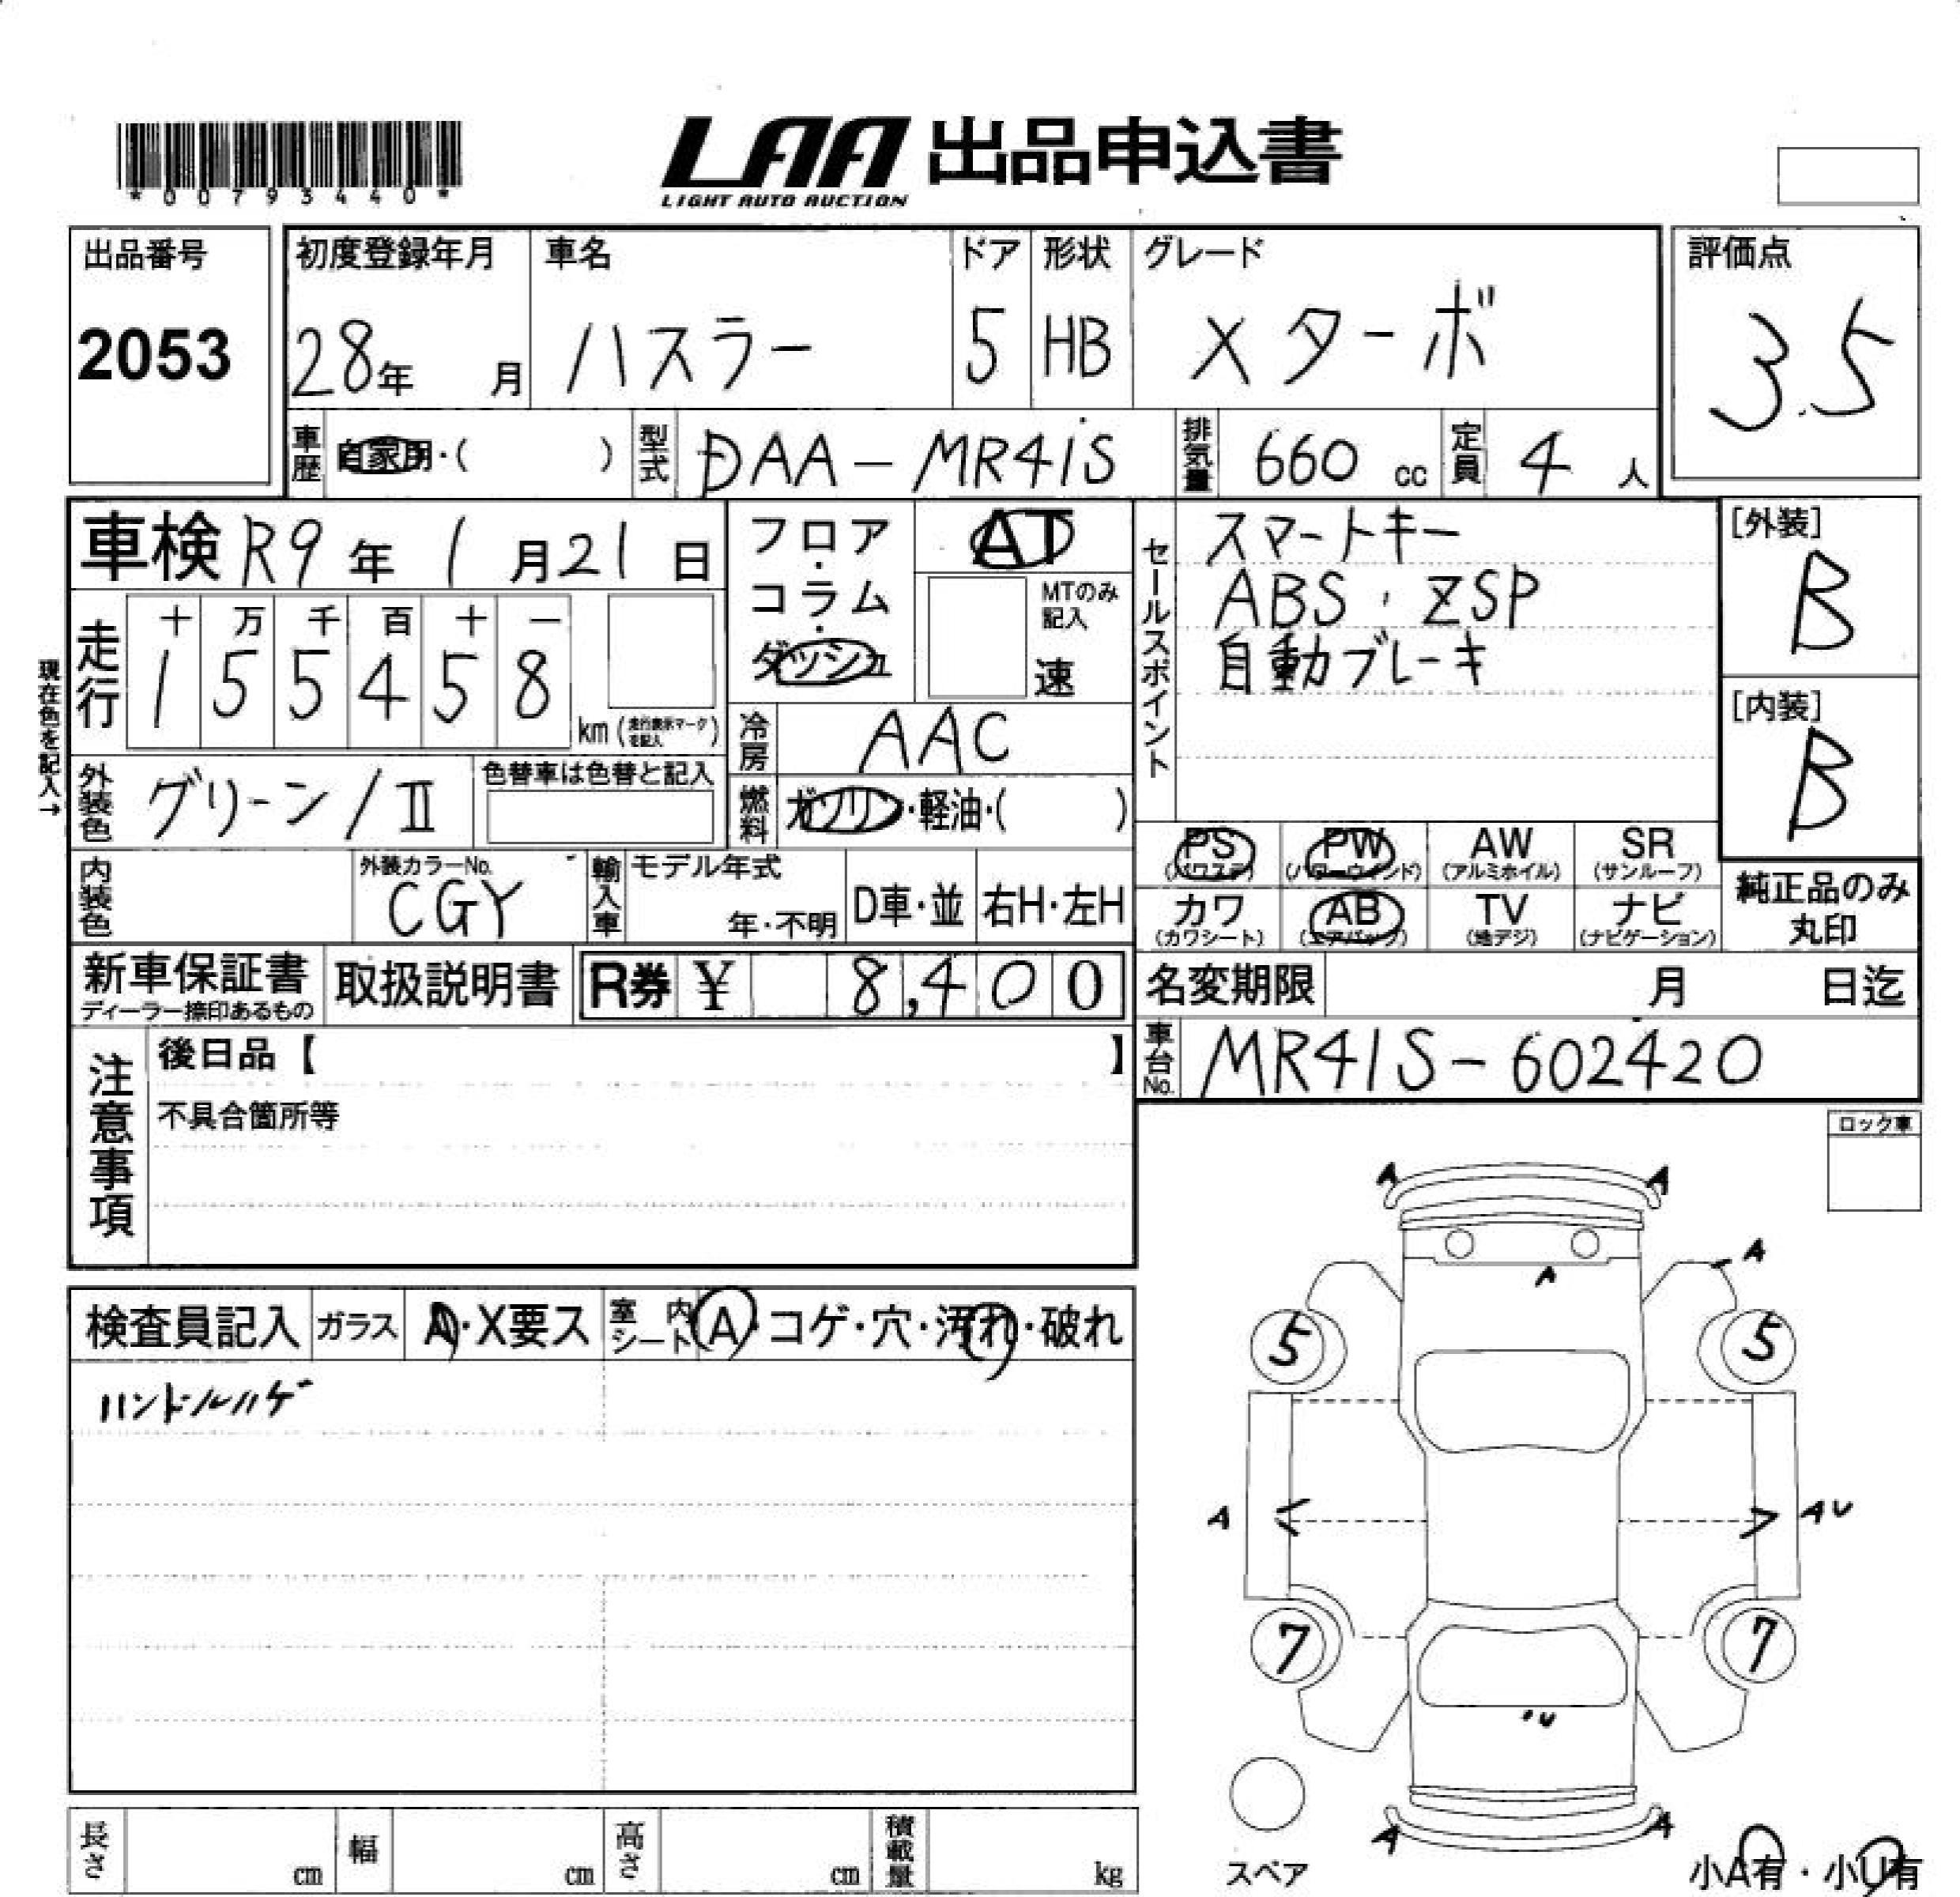 *00793440*
LAA 出品申込書
LIGHT AUTO AUCTION
出品番号
2053
初度登録年月
28年 月
車名
ハスラー
ドア
5
形状
HB
グレード
Xターボ
評価点
3.5
車歴 自家用・( )
型式 DAA-MR41S
排気量 660 cc
定員 4 人
車検 R9年 1月21日
フロア・コラム・ダッシュ
AT
MTのみ記入
速
セールスポイント
スマートキー
ABS・ZSP
自動ブレーキ
[外装]
B
[内装]
B
現在色を記入→
走行
十 万 千 百 十 一
1 5 5 4 5 8
km (走行表示マークを記入)
冷房 AAC
外装色 グリーン/Ⅱ
色替車は色替と記入
燃料 ガソリン・軽油・( )
PS (パワステ)
PW (パワーウインド)
AW (アルミホイル)
SR (サンルーフ)
カワ (カワシート)
AB (エアバック)
TV (地デジ)
ナビ (ナビゲーション)
純正品のみ
丸印
内装色
外装カラーNo.
CGY
輸入車
モデル年式
年・不明
D車・並
右H・左H
新車保証書
ディーラー捺印あるもの
取扱説明書
R券 ¥ 8,400
名変期限 月 日迄
車台No. MR41S-602420
注意事項
後日品【 】
不具合箇所等
ロック車
検査員記入
ガラス A・X要ス
室内シート A・コゲ・穴・汚れ・破れ
ハンドルハゲ
A A
A A
5 5
A AU
7 7
U
A A
スペア
小A有・小U有
長さ cm
幅 cm
高さ cm
積載量 kg